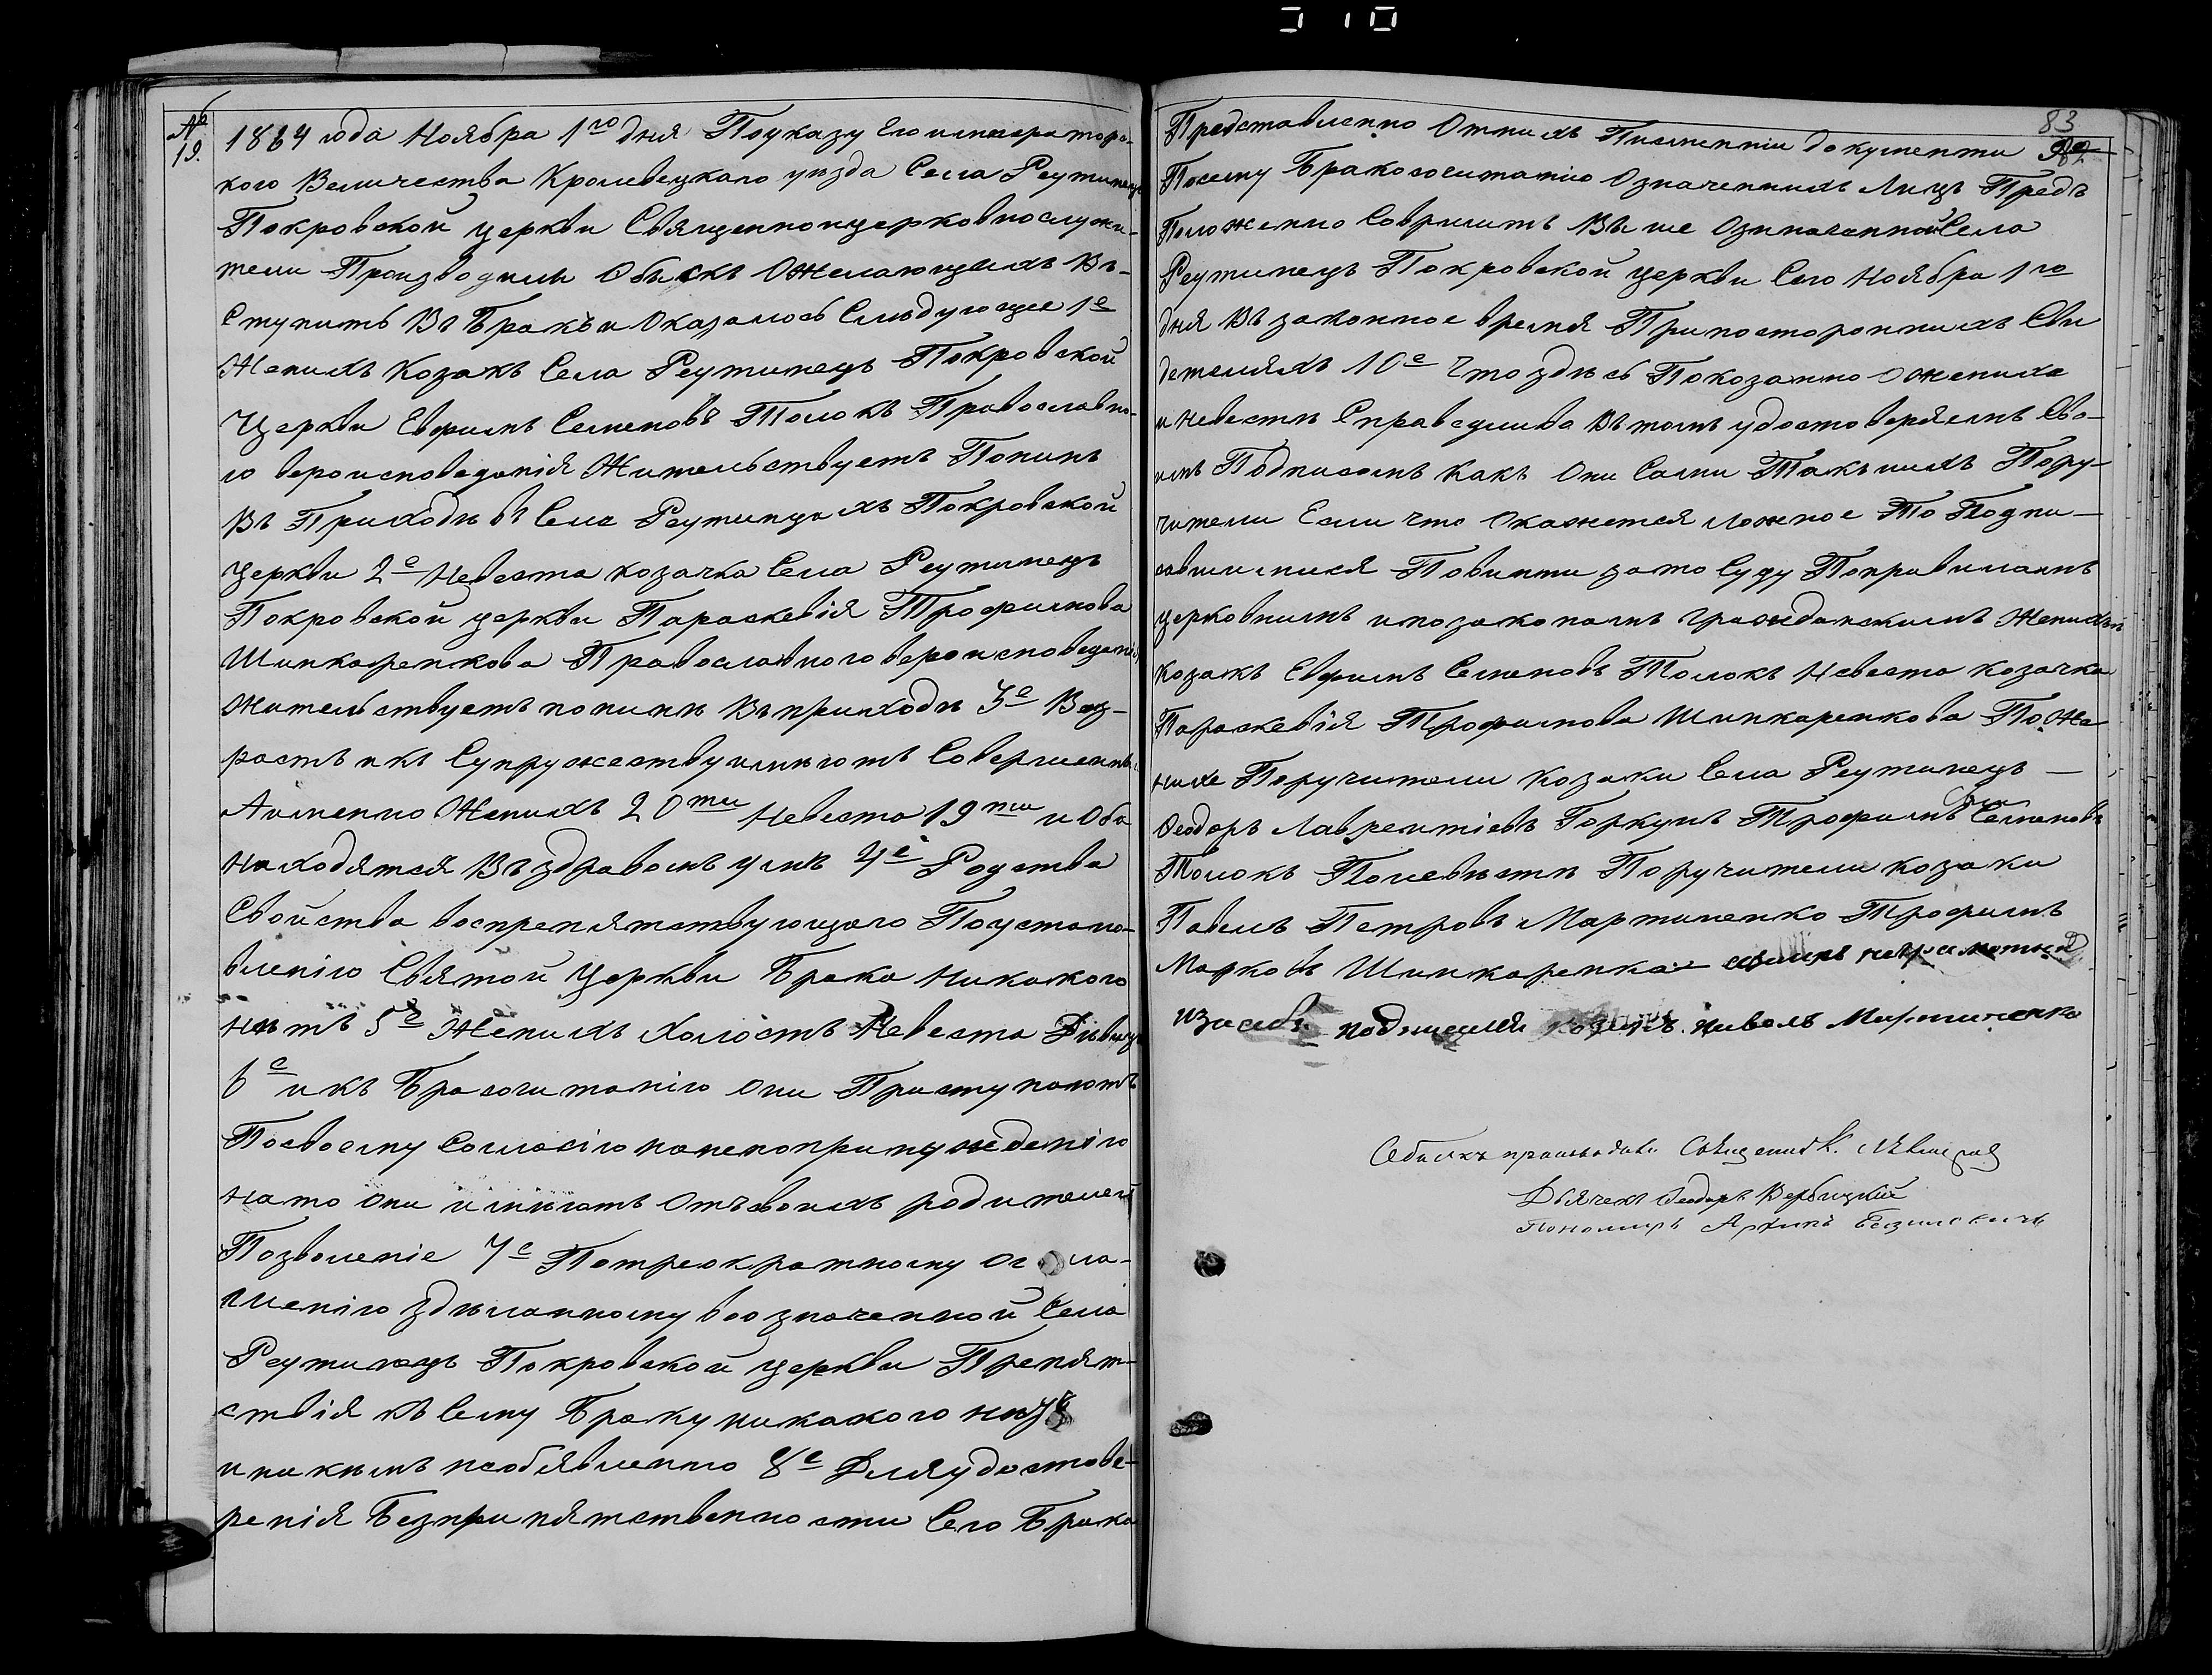 №
19.
1864 года Ноября 1го дня По указу Его императорс-
кого Величества Кролевецкаго уѣзда Села Реутинец
Покровской церкви Священноицерковнослужи-
тели Производили Обыскъ Ожелающихъ Въ-
Ступить Въ Бракъ и Оказалось Слѣдующее 1е
Женихъ Козакъ Села Реутинецъ Покровской
Церкви Евфимъ Семеновъ Толокъ Православно-
го вероисповеданія Жительствуетъ Понинѣ
Въ Приходѣ въ Селе Реутинцахъ Покровской
Церкви 2е Невеста козачка Села Реутинецъ
Покровской церкви Параскевія Трофимова
Шинкаренкова Православного вероисповедані
Жительствуетъ понинѣ Въ приходѣ 3е Воз-
растъ икъ Супружеству имѣютъ Совершенны
Аименно Женихъ 20ти Невеста 19ти и Оба
находятся Въ здравомъ умѣ 4е Родства
Свойства воспрепятствующаго Поустано-
вленію Святой Церкви Брака Никакого
нѣтъ 5е Женихъ Холостъ Невеста Дѣвица
6е икъ Брасочитанію Они Приступаютъ
Посвоему Согласію нонепопринужденію
нато Они имѣютъ Отъсвоихъ родителей
Позволеніе 7е Потреократному Огла-
шенію Здѣланному воозначенной Села
Реутинецъ Покровской церкви Препят-
ствія къ Сему Браку никакого нѣтъ
иникимъ необявленно 8е Дляудостове-
ренія Безприпятственности Сего Брака
83
Представленно Отнихъ Писменніи документи 9е
Посему Бракосочитанію Означеннихъ Лицъ Предъ
Положенно Совришить Въше Означенной Села
Реутинецъ Покровской церкви Сего Ноября 1го
дня Въ законное время Припосторонних Сви
детеляхъ 10е Что здѣсь Показанно О женихе
и невестѣ Справедливо Въ томъ удостоверяемъ Сво-
имъ Подписомъ Какъ Они Сами Такъ ихъ Пору-
чители Если что Окажется ложное То Подпи-
савшиипися Повинни зато Суду Поправиламъ
церковнимъ ипозаконамъ Гражданскимъ Женихъ
козакъ Евфимъ Семеновъ Толокъ Невеста козачка
Параскевія Трофимова Шинкаренкова По Же
нихе Поручители козаки Села Реутинецъ —
Феодоръ Лаврентіевъ Горкунъ Трофимъ Семеновъ
Толокъ Поневѣстѣ Поручители козаки
Павелъ Петровъ Мартиненко Трофимъ
Марковъ Шинкаренка неграмотни
изасебя подписался козакъ Павелъ Мартиненко
Собискъ производили Священникъ К.
Дьячекъ Феодоръ Вербицкій
Пономарь Архипъ